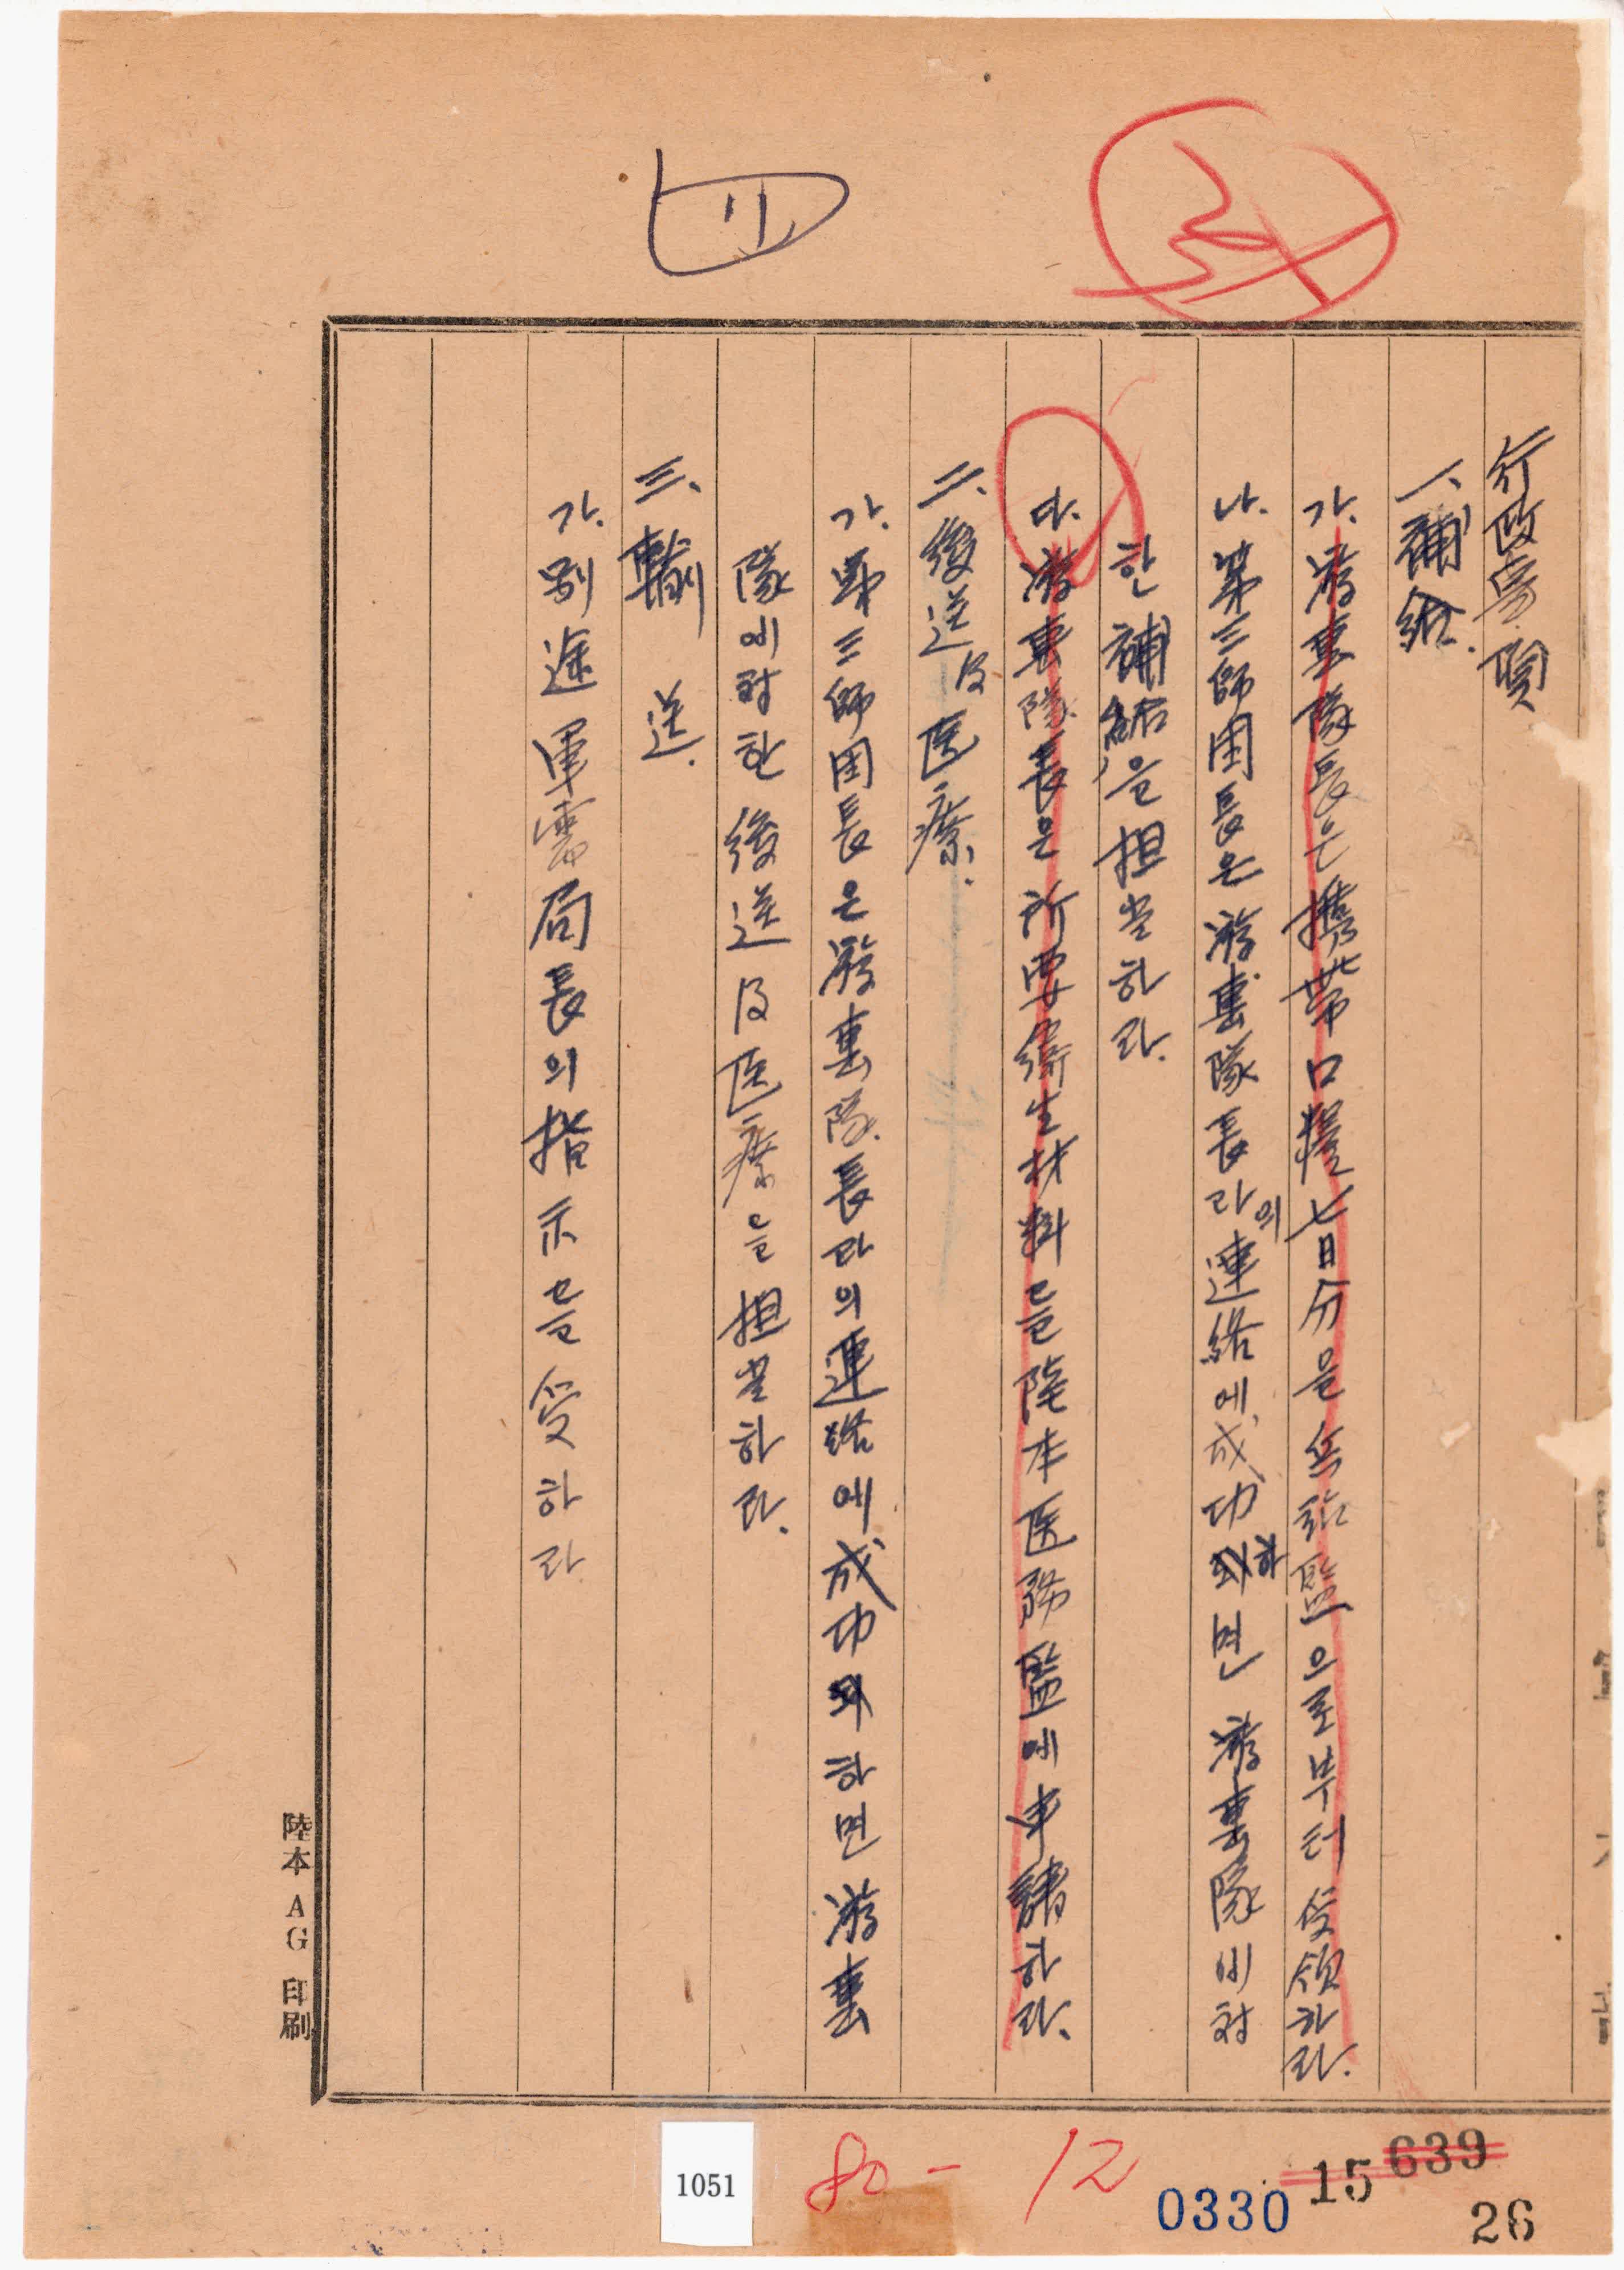 行政事項
一、補給.
가. 游裏隊長은 携帶口糧七日分을 兵站監으로부터 受領하라.
나. 第三師団長은 游裏隊長라의 連絡에 成功하면 游裏隊에 対
한 補給을 担当하라.
다. 游裏隊長은 所要衛生材料를 陸本医務監에 申請하라.
二、後送及医療.
가. 第三師団長은 游裏隊長라의 連絡에 成功하면 游裏
隊에 対한 後送及医療을 担当하라.
三、輸送.
가. 別途軍需局長의 指示를 受하라
陸本 AG 印刷
1051
80 - 12
0330
15
639
26